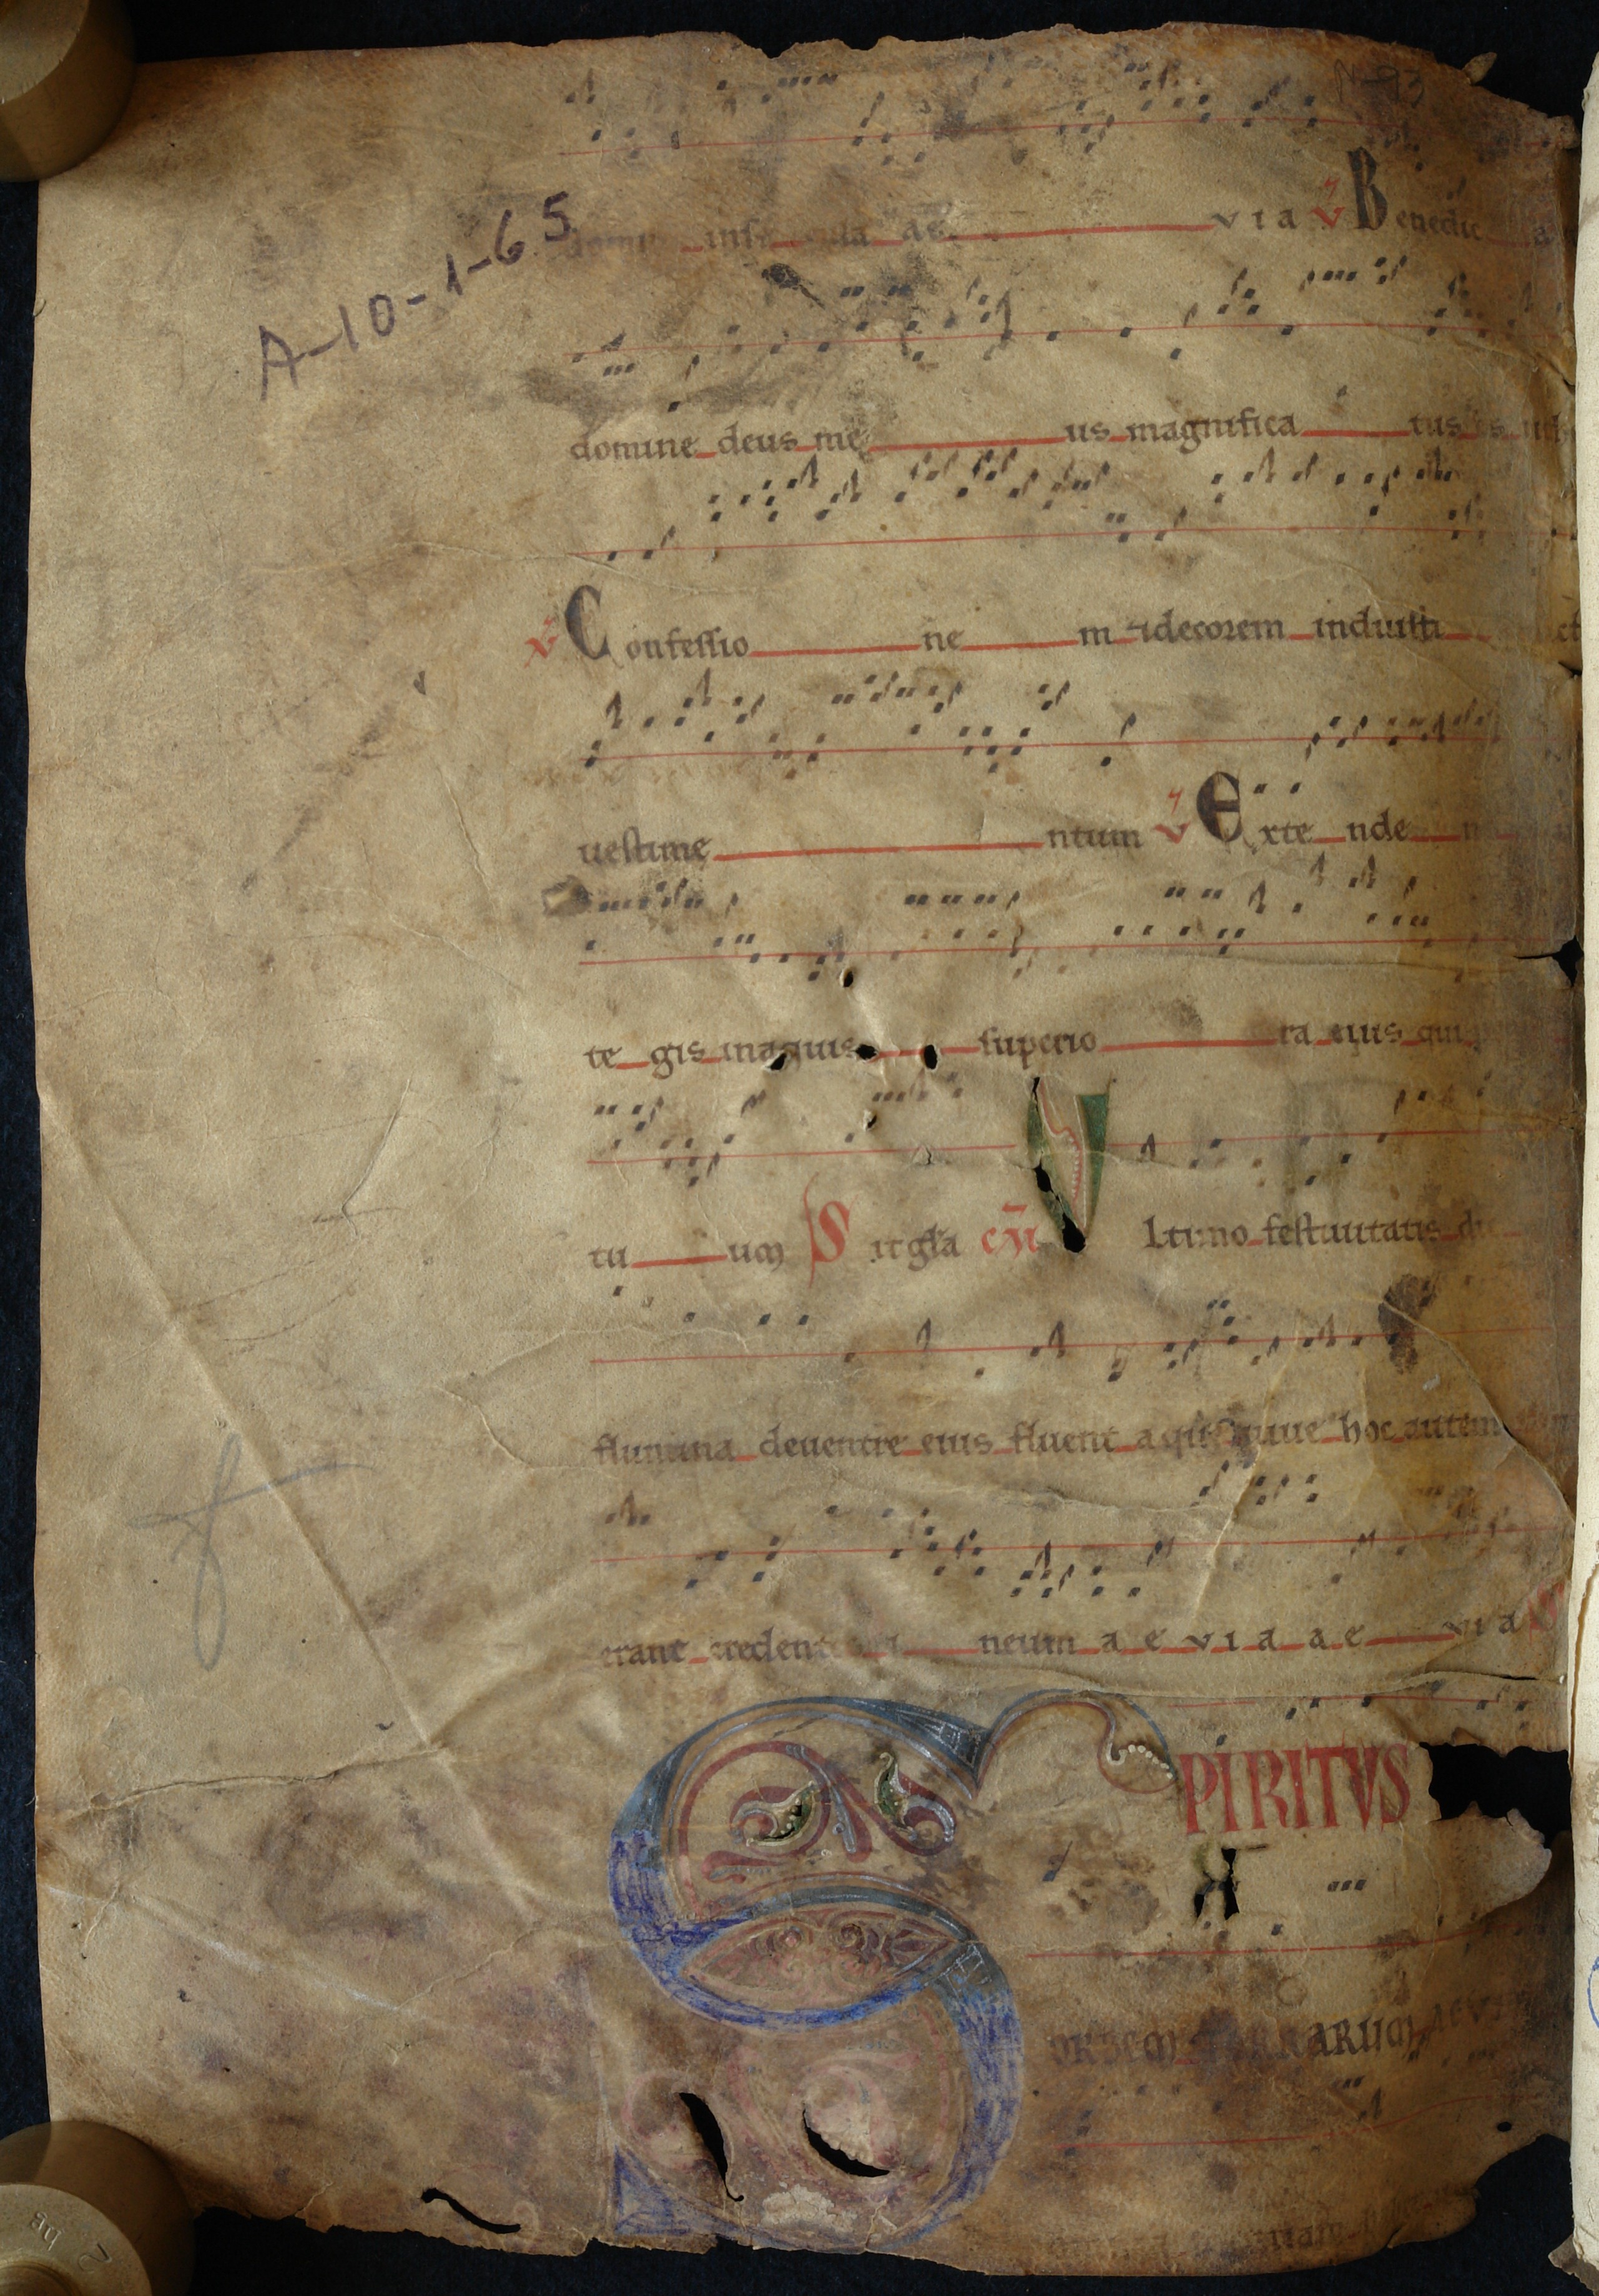 N-93
A-10-1-65
via ℣ Benedic a
domine deus me us magnifica tus es
℣ Confessio ne m ⁊decorem induisti
uestime ntum ℣ Exte nde n
te gis inaquis superio ra eius qui p
tu um Sit gła cm̄ Ltimo festiuitatis di
flumina deuentre eius fluent aque uiue hoc autem
erant credent i neum a e v i a a e v i a
SPIRITVS
ORBEM TERRARUM AEVI